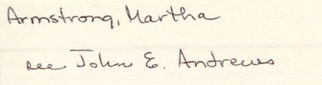 Armstrong, Martha
see John E. Andrews